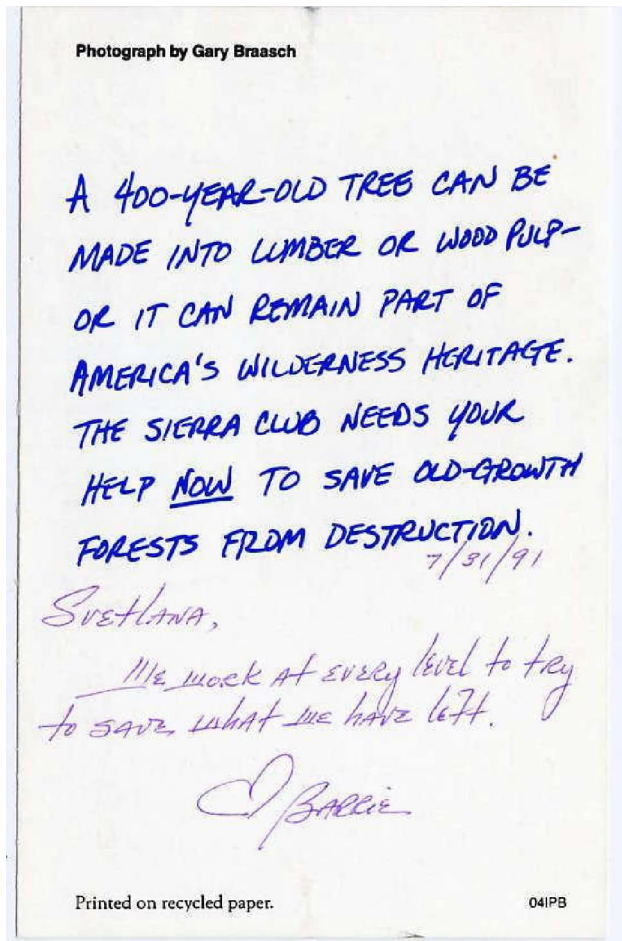 Photograph by Gary Braasch
A 400-YEAR-OLD TREE CAN BE
MADE INTO LUMBER OR WOOD PULP-
OR IT CAN REMAIN PART OF
AMERICA'S WILDERNESS HERITAGE.
THE SIERRA CLUB NEEDS YOUR
HELP NOW TO SAVE OLD-GROWTH
FORESTS FROM DESTRUCTION.
7/31/91
Svetlana,
We work at every level to try
to save what we have left.
♡ Barrie
Printed on recycled paper.
04IPB